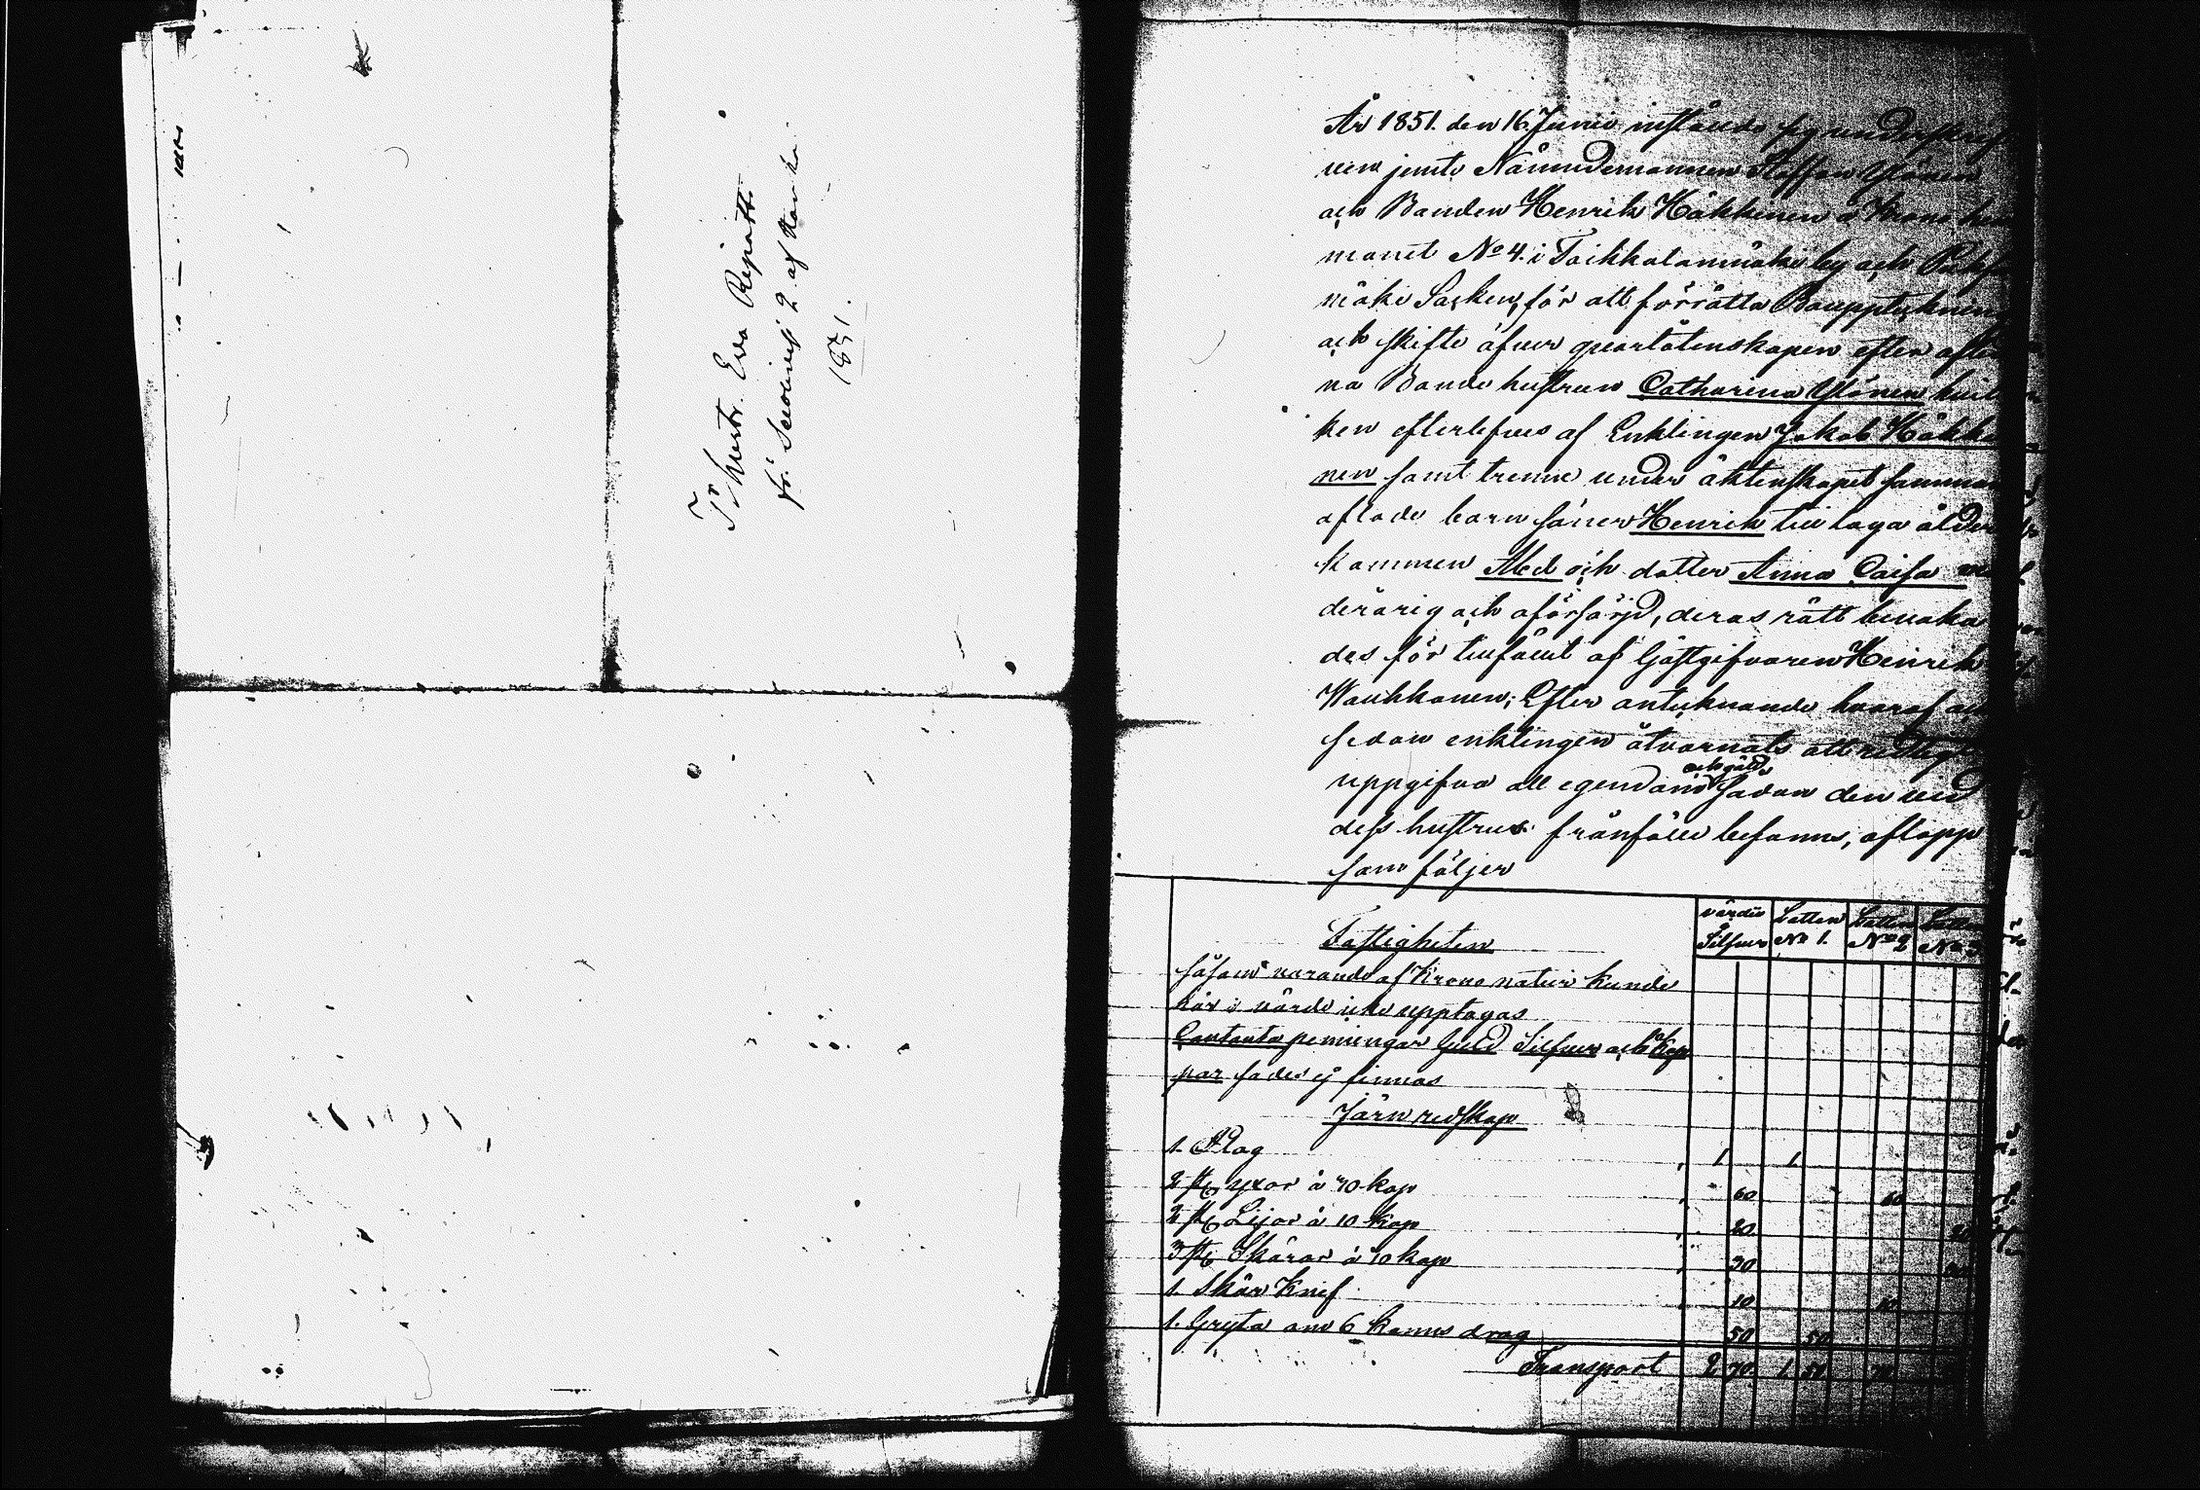 Hustr. Eva Repatti
för Sednings 2. af
1851.
År 1851. den 16 Junii inställde sig underskref
ven jemte Nämndemannen Staffan Ylönen
och Bonden Henrik Häkkinen å Krono hem
manet No 4. i Taikkalanmäki by och
mäki Socken, för att förrätta Bouppteckning
och skifte öfver qvarlåtenskapen efter afled
na Bonde hustrun Catharina Ylönen hvil
ken efterlefves af Enklingen Jakob Häkki
nen samt trenne under äktenskapet samman
aflade barn söner Henrik till laga ålder
kommen Abel och dotter Anna Caisa min
derårig och oförsörjd, deras rätt bevaka
des för tillfället af Gästgifvaren Henrik
Waukkonen; Efter antecknande hvaraf och
sedan enklingen åtvarnats att redligen
uppgifva all egendom och gäld sådan den vid
dess hustrus frånfälle befanns, aflopp
som följer
värde Silfver Lotten No 1. Lotten No 2 Lotten No 3
Fastigheten
såsom varande af Krono natur kunde
här i värde icke upptagas
Contanta penningar Guld Silfver och Kop
par sades ej finnas
Järn redskap
1. Plog 1 1
2 st. yxor à 30 kop 60 60
2 st. Lijor à 10 kop 20 20
3 st. Skäror à 10 kop 30
1. Skär Knif 10 10
1. Gryta om 6 kanns drag 50 50
Transport 2 70 1 50 70